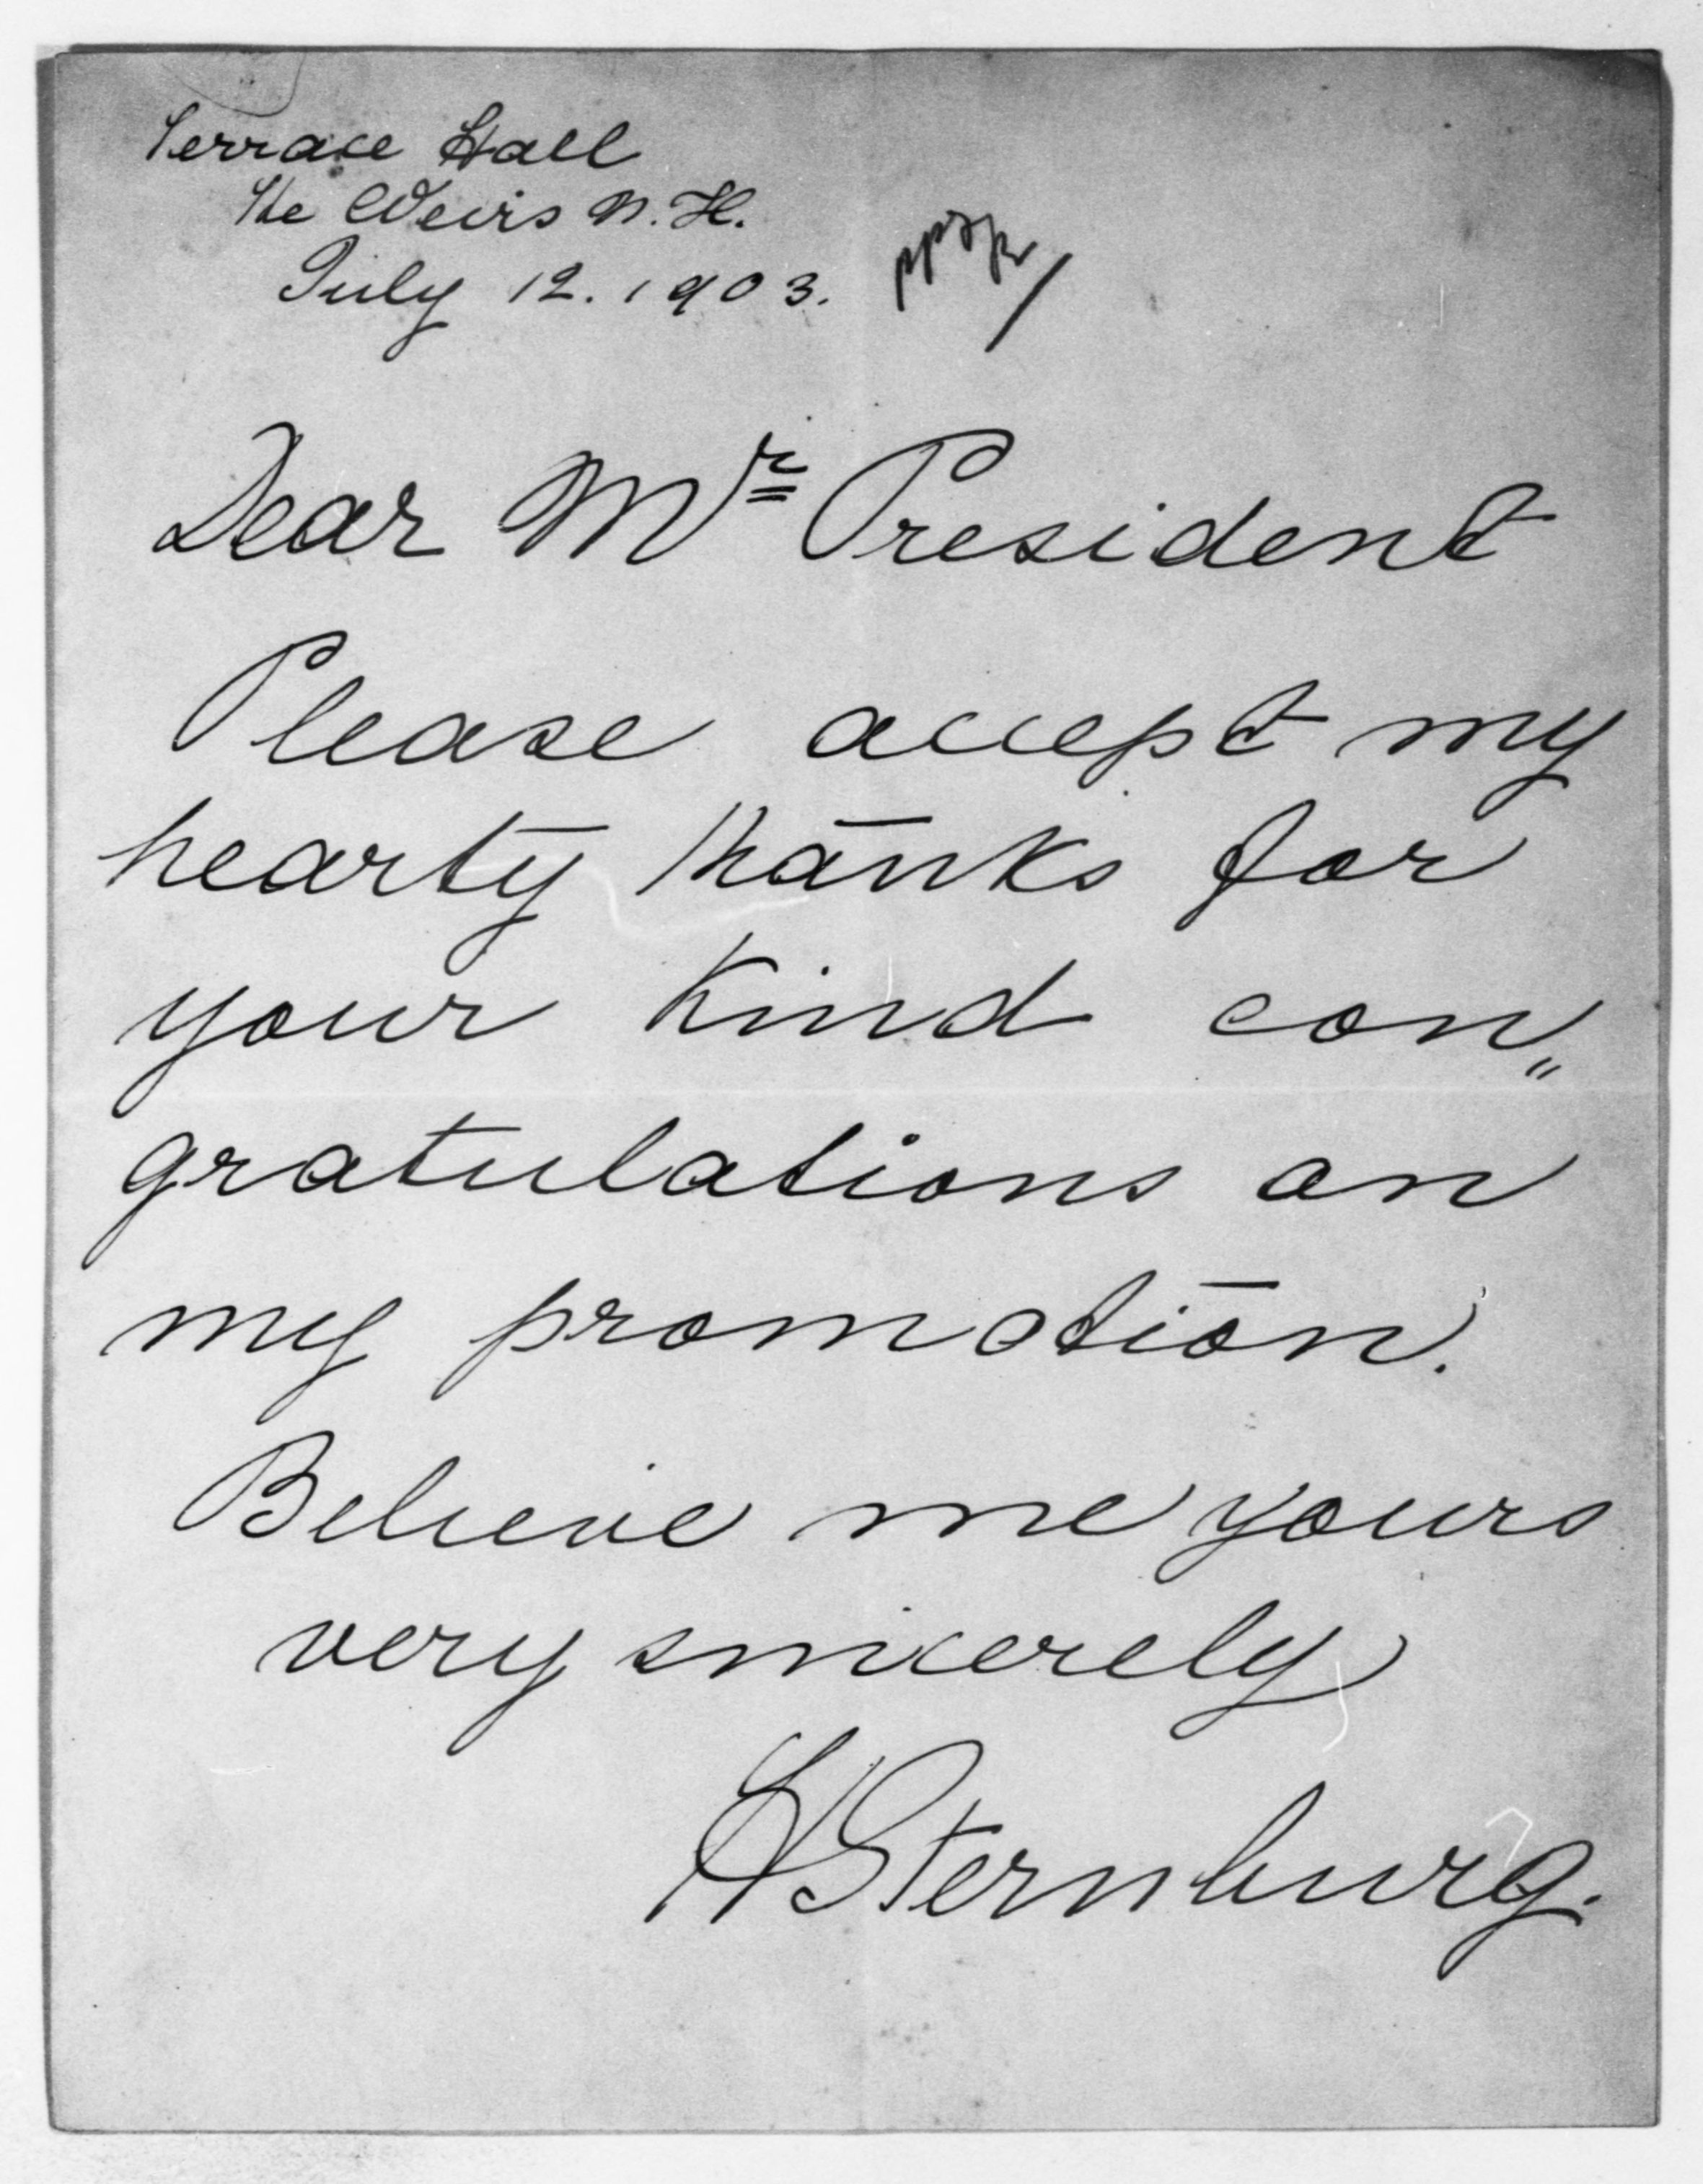 Terrace Hall
The Weirs N. H.
July 12. 1903.
Dear Mr President
Please accept my
hearty thanks for
your kind con„
gratulations on
my promotion.
Believe me yours
very sincerely
HSternburg.